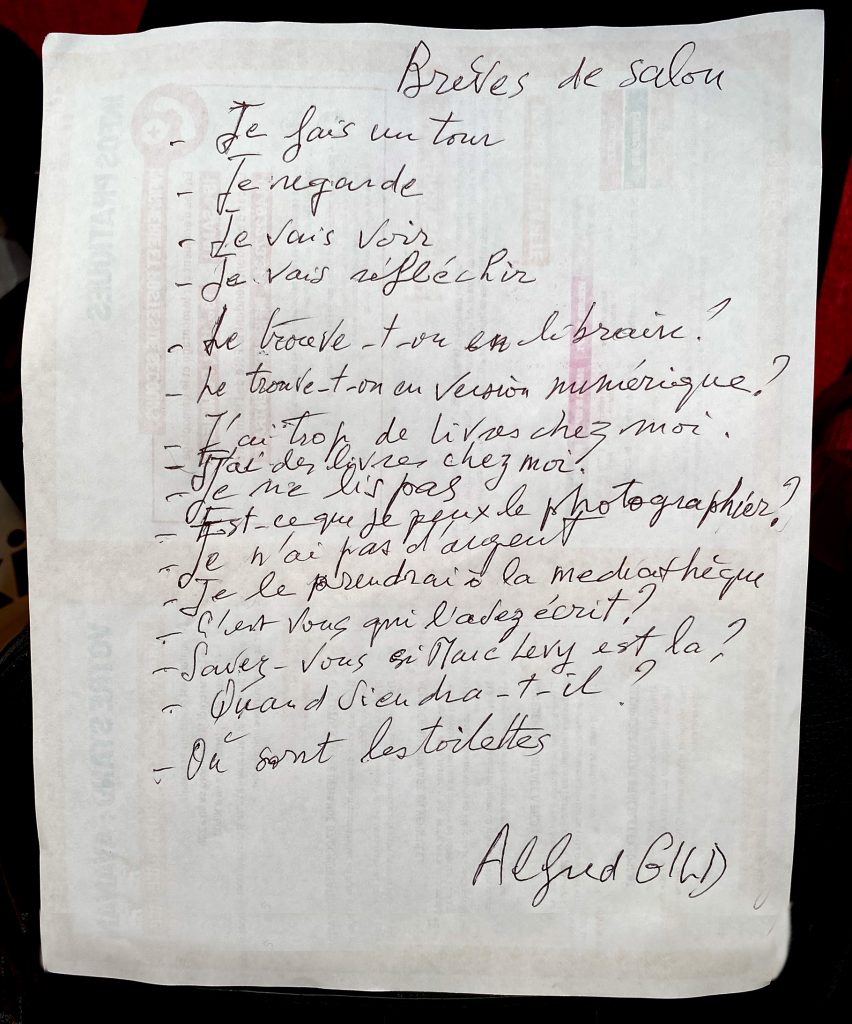 Brèves de salon
- Je fais un tour
- Je regarde
- Je vais voir
- Je vais réfléchir
- Le trouve-t-on en librairie?
- Le trouve-t-on en version numérique?
- J'ai trop de livres chez moi.
- J'ai des livres chez moi.
- Je ne lis pas
- Est-ce que je peux le photographier?
- Je n'ai pas d'argent
- Je le prendrai à la mediathèque
- C'est vous qui l'avez écrit?
- Savez-vous si Marc Levy est la?
- Quand viendra-t-il?
- Où sont les toilettes
Alfred GILD
INFOS PRATIQUES